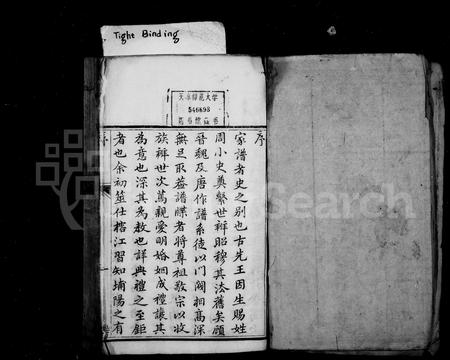 Tight Binding
天津師范大学
546898
圖書館藏書
序
家譜者史之別也古先王因生賜姓
周小史奠繫世辨昭穆其法舊矣顧
晉魏及唐作譜系徒以門閥相高深
無足取蓋譜牒者將尊祖敬宗以收
族辨世次篤親愛明婚姻成禮讓其
為意也深其為教也詳典禮之至鉅
者也余初筮仕楷江習知埔陽之有
Search